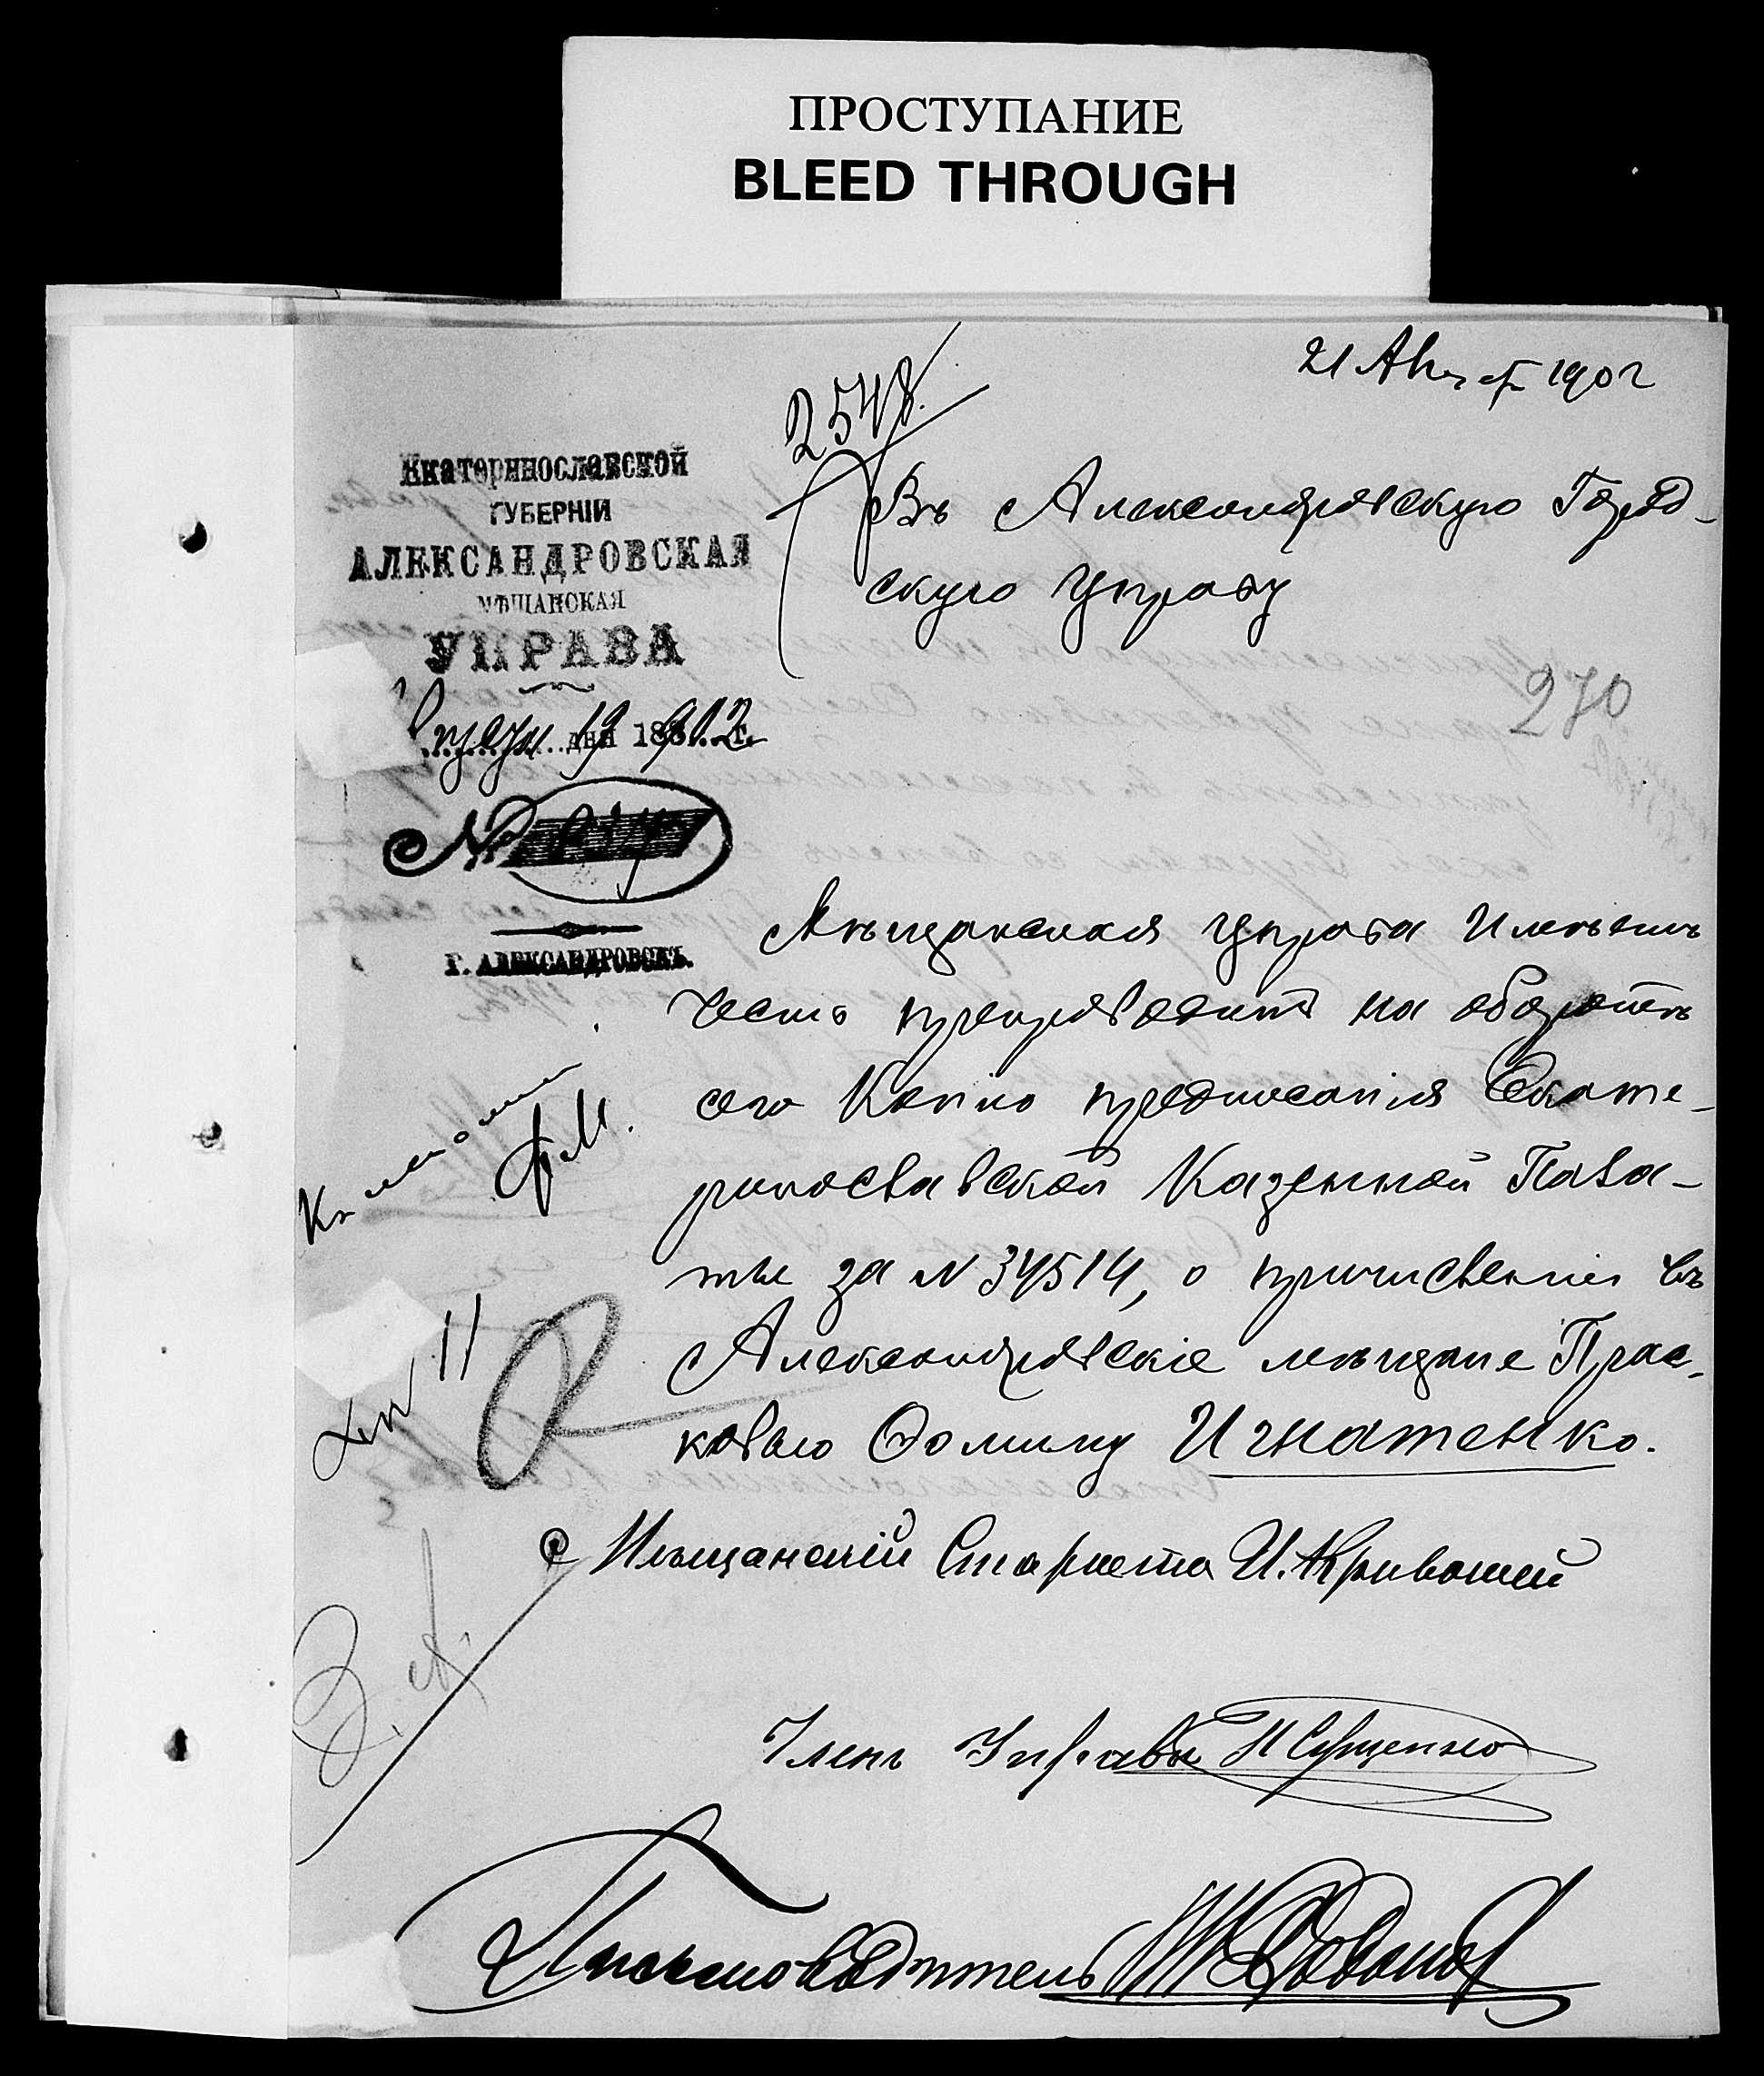 ПРОСТУПАНИЕ
BLEED THROUGH
21 Авг 1902
2548.
Екатеринославской
ГУБЕРНІИ
АЛЕКСАНДРОВСКАЯ
МѢЩАНСКАЯ
УПРАВА
дня 19 1902 г.
№
Г. АЛЕКСАНДРОВСКЪ.
Въ Александровскую Город-
скую Управу
270
Мѣщанская Управа Имѣетъ
честь препроводить на оборотѣ
сего Копію предписанія Екате-
ринославской Казенной Пала-
ты за № 34514, о причисленіи въ
Александровскіе мѣщане Прас-
ковью Фомину Игнатенко.
Мѣщанскій Староста И. Кривошей
Членъ Управы
Письмоводитель